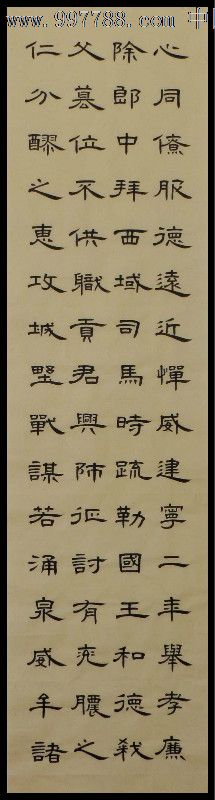 www.997788.com 中
心同僚服德遠近憚威建寧二年舉孝廉
除郎中拜西域司馬時疏勒國王和德弒
父篡位不供職貢君興師征討有兗膿之
仁分醪之惠攻城野戰謀若涌泉威牟諸